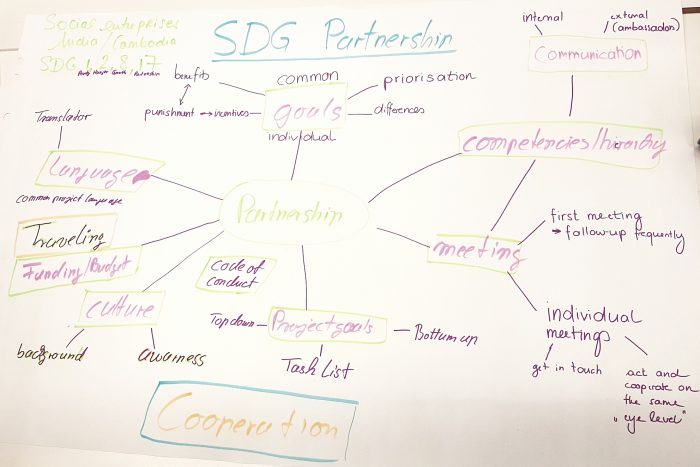 Social enterprises
India/Cambodia
SDG 1, 2, 8, 17
SDG Partnership
internal
external
/(ambassador)
Communication
benefits
common
priorisation
punishment
incentives
goals
differences
individual
competencies/hirarchy
Translator
Language
common project language
Partnership
Traveling
Funding/Budget
meeting
first meeting
→ follow-up frequently
code of
conduct
culture
background
awarness
Top down
Project goals
Bottum up
Task List
individual
meetings
get in touch
act and
cooprate on
the same
„eye level"
Cooperation